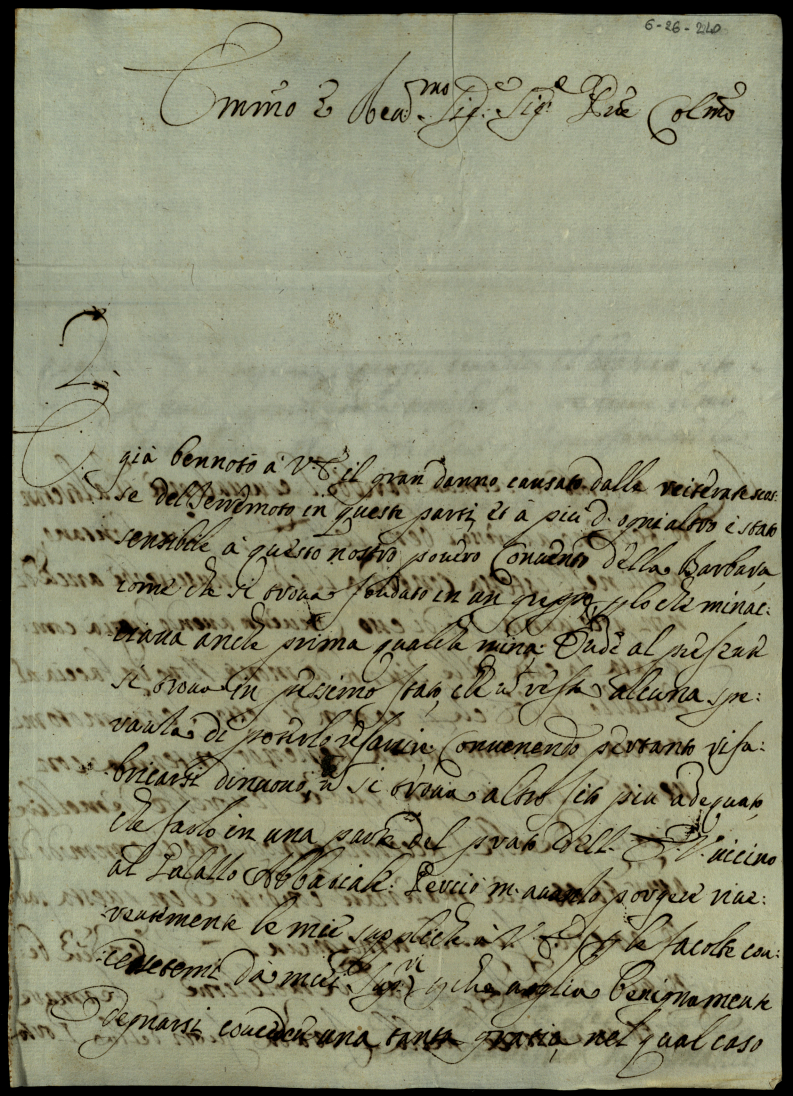 6-26-240
Emin̄o e Reu.mo Sig.e Sig.e Pr̄ne Colm̄o
E
già bennoto à V. E. il gran danno causato dalla reiterate scos:
se del Terremoto in queste parti, et à più d'ogni altro è stato
sensibile à questo nostro povero Convento della Barbara,
come che si trova fondato in un greppo, p lo che minac:
ciava anche prima qualche ruina. Onde al presente
si trova in pessimo stato, che n̄ resta alcuna spe:
ranza di poterlo resarcire. Convenendo pertanto rifa:
bricarsi di nuovo, n̄ si trova altro sito più adequato,
che farlo in una parte del prato dell' vicino
al Palazzo Abbaciale. Perciò m'avanzo porgere rive:
rentemente le mie suppliche à V. E. p le facoltà con:
cedetemi da miei Sup.ri, che voglia benignamente
degnarsi conceder una tanta gratia, nel qual caso